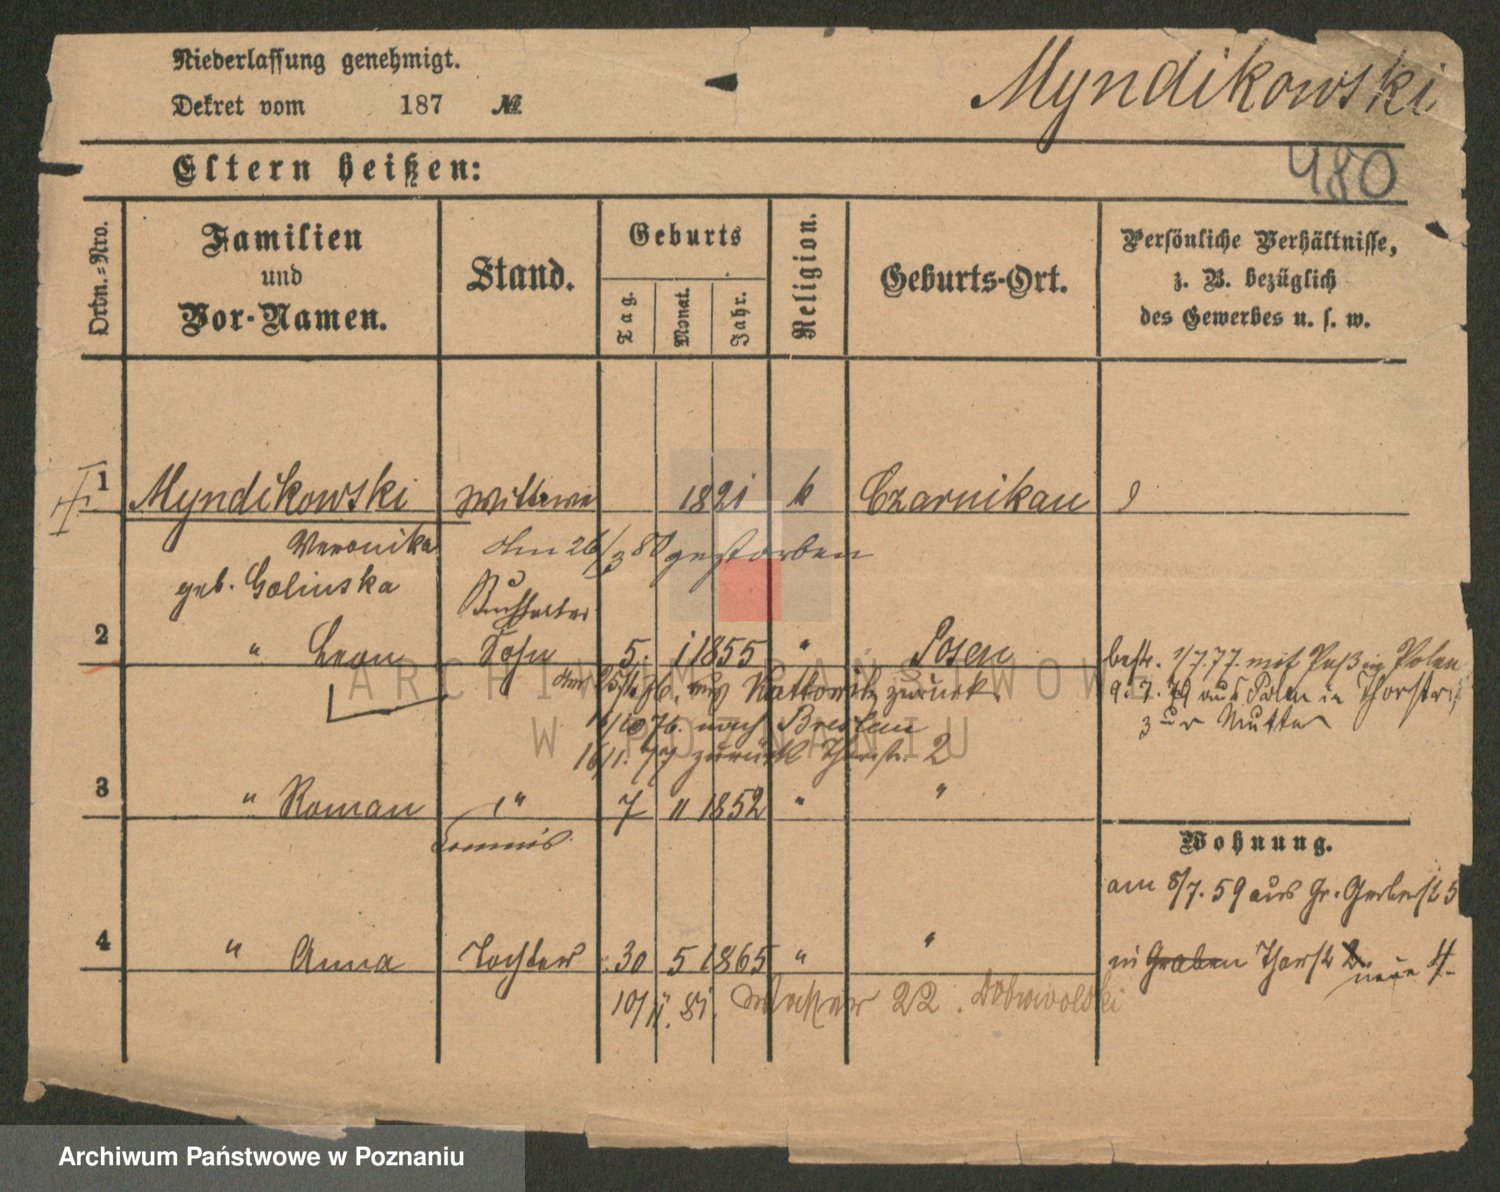 Niederlassung genehmigt.
Dekret vom 187 №
Myndikowski
480
Eltern heißen:
Ordn.-Nro.
Familien und Vor-Namen.
Stand.
Geburts
Tag.
Monat.
Jahr.
Religion.
Geburts-Ort.
Persönliche Verhältnisse, z. B. bezüglich des Gewerbes u. s. w.
1 Myndikowski Wittwe 1821 k Czarnikau
Veronika den 26/3 80 gestorben
geb. Golinska
Buchhalter
2 " Leon Sohn 5. 1 1855 " Posen
bestr. 1/7.77. mit Paß in Polen
9.7.79 aus Polen in Thorstr
zur Mutter
76. aus Kattowitz zurück.
76. nach Breslau
16/1. 77 zurück Thorstr. 2
3 " Roman " 7 11 1852 " "
Commis
Wohnung.
am 8/7. 59 aus Gr. Gerberst 5
4 " Anna Tochter 30 5 1865 " "
in Graben Thorstr 2 neue 4
10/11. 81. Wasser 22. Dobrowolski
ARCHIWUM PAŃSTWOWE
W POZNANIU
Archiwum Państwowe w Poznaniu